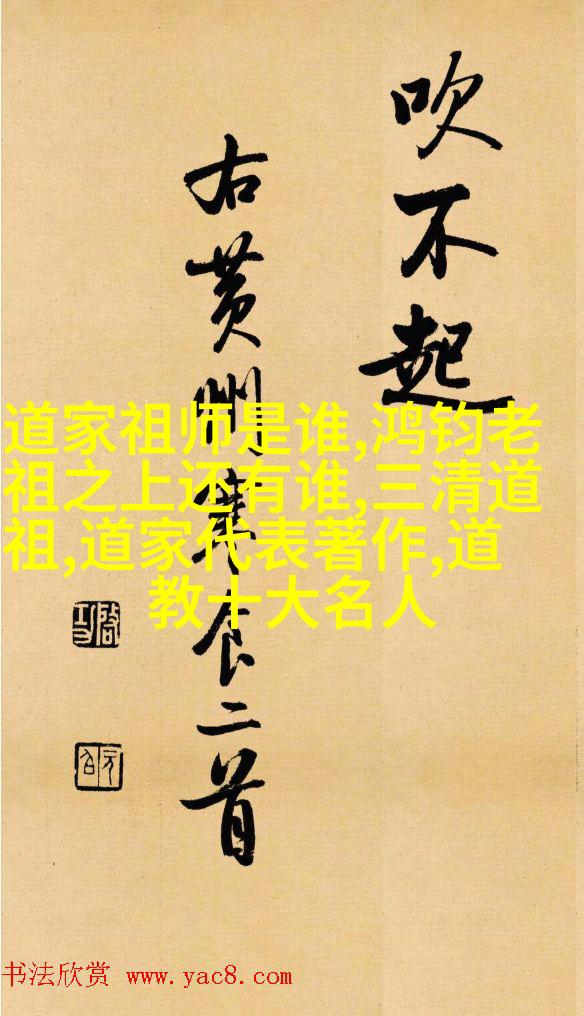 吹不起
右黄州寒食二首
啓功
元白
道家祖师是谁,鸿钧老
祖之上还有谁,三清道
祖,道家代表著作,道
教十大名人
书法欣赏 www.yac8.com